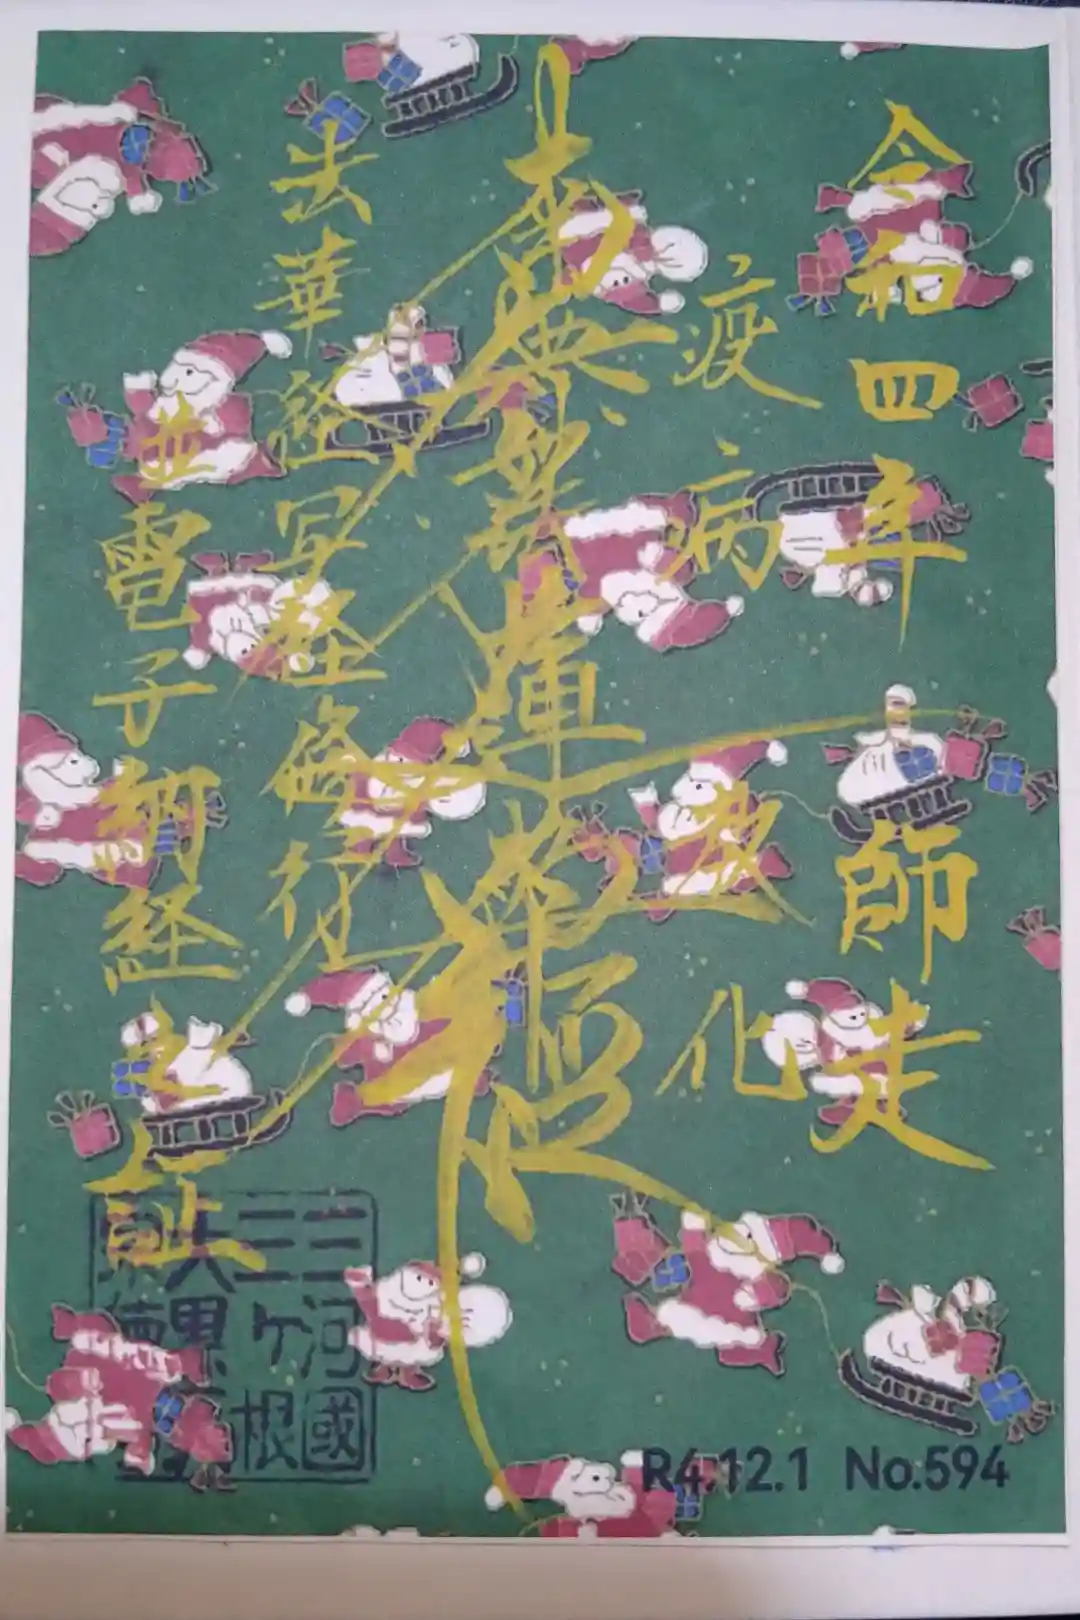 令和四年 師走
疫病 教化
南無妙法蓮華経
法華経写経修行
並電子納経之証
三河國
三ヶ根
R4.12.1 No.594